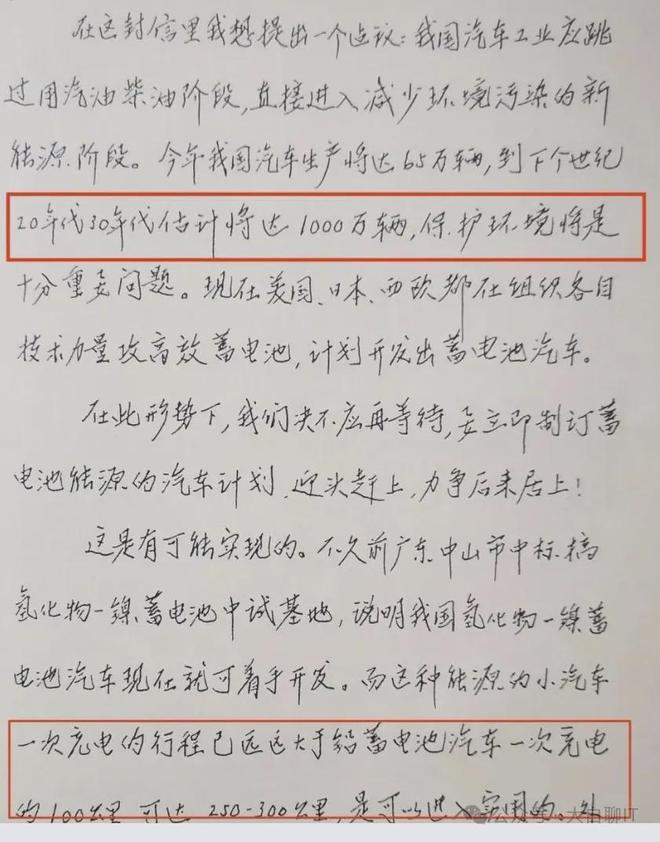 在这封信里我想提出一个建议:我国汽车工业应跳
过用汽油柴油阶段,直接进入减少环境污染的新
能源阶段。今年我国汽车生产将达65万辆,到下个世纪
20年代30年代估计将达1000万辆,保护环境将是
十分重要问题。现在美国、日本、西欧都在组织各自
技术力量攻高效蓄电池,计划开发出蓄电池汽车。
在此形势下,我们决不应再等待,要立即制订蓄
电池能源的汽车计划,迎头赶上,力争后来居上!
这是有可能实现的。不久前广东中山市中标搞
氢化物-镍蓄电池中试基地,说明我国氢化物-镍蓄
电池汽车现在就可着手开发。而这种能源的小汽车
一次充电的行程已远远大于铅蓄电池汽车一次充电
的100公里 可达 250-300公里,是可以进入实用的。外
公众号 大白聊IT